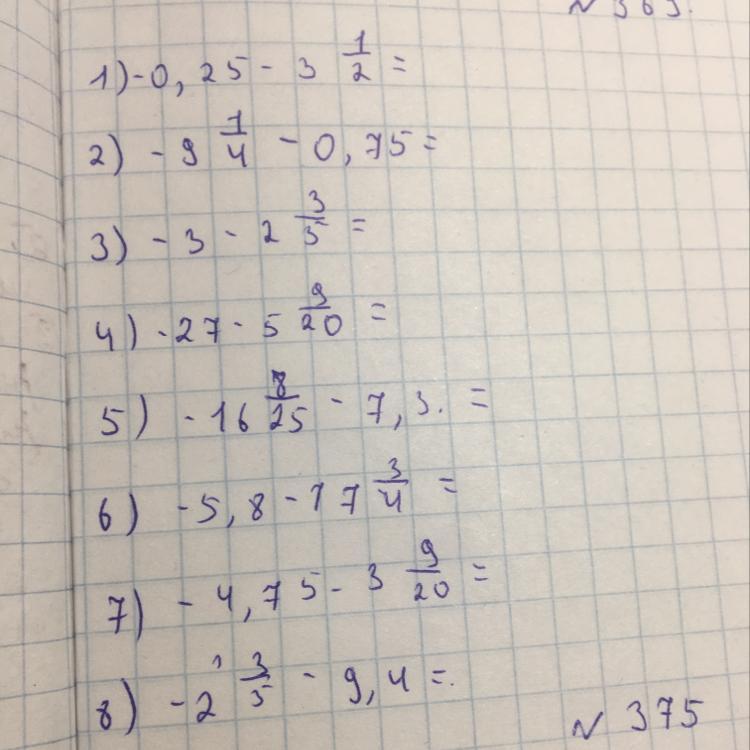 N 363.
1) -0,25 - 3 1/2 =
2) - 9 1/4 - 0,75 =
3) - 3 - 2 3/5 =
4) -27 - 5 9/20 =
5) -16 8/25 - 7,3. =
6) -5,8 - 17 3/4 =
7) - 4,75 - 3 9/20 =
8) -2 3/5 - 9,4 =.
N 375